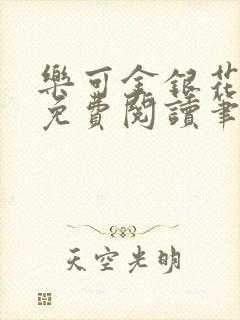 樂可金銀花
免費閱讀筆
天空光明